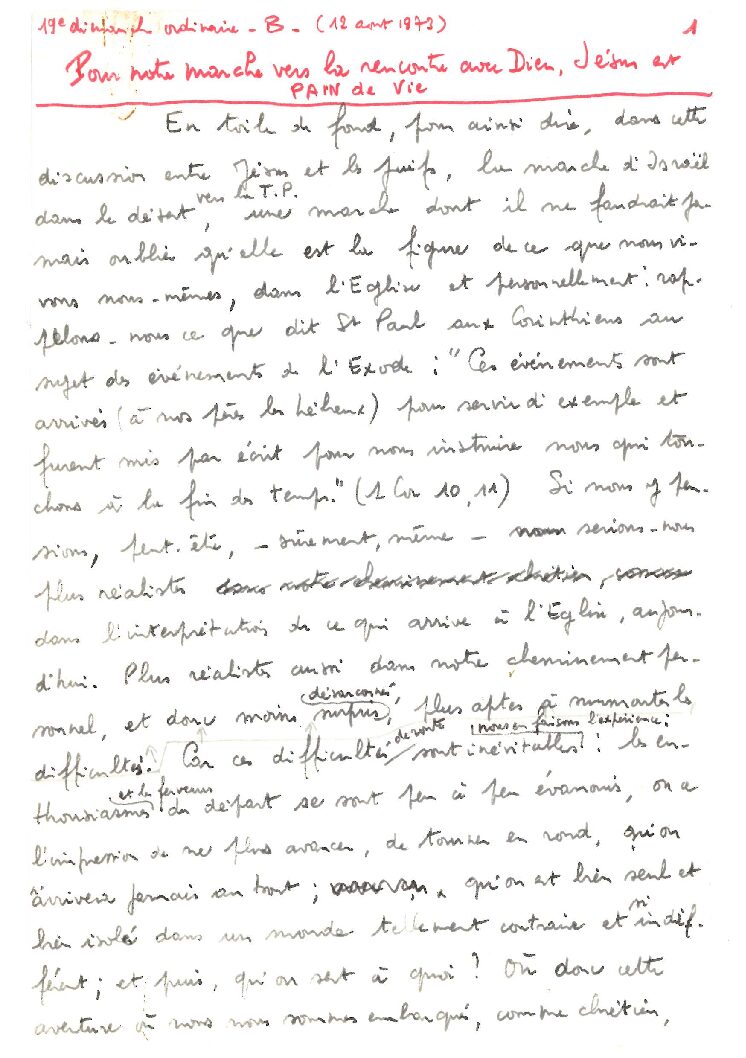 19e dimanche ordinaire - B - (12 août 1973) 1
Pour notre marche vers la rencontre avec Dieu, Jésus est
PAIN de Vie
En toile de fond, pour ainsi dire, dans cette
discussion entre Jésus et les juifs, la marche d'Israël
vers la T.P.
dans le désert, une marche dont il ne faudrait ja-
mais oublier qu'elle est la figure de ce que nous vi-
vons nous-mêmes, dans l'Eglise et personnellement : rap-
pelons-nous ce que dit St Paul aux Corinthiens au
sujet des événements de l'Exode : "Ces événements sont
arrivés (à nos pères les hébreux) pour servir d'exemple et
furent mis par écrit pour nous instruire nous qui tou-
chons à la fin des temps." (1 Cor 10,11) Si nous y pen-
sions, peut-être, - sûrement, même - nous serions-nous
plus réalistes dans notre cheminement chrétien,
dans l'interprétation de ce qui arrive à l'Eglise, aujour-
d'hui. Plus réalistes aussi dans notre cheminement per-
désarçonnés,
sonnel, et donc moins surpris, plus aptes à surmonter les
de route nous en faisons l'expérience :
difficultés. Car ces difficultés sont inévitables : les en-
et la ferveur
thousiasmes du départ se sont peu à peu évanouis, on a
l'impression de ne plus avancer, de tourner en rond, qu'on
n'arrivera jamais au bout ; qu'on est bien seul et
si
bien isolé dans un monde tellement contraire et indif-
férent ; et puis, qu'on sert à quoi ? Où donc cette
aventure où nous nous sommes embarqués, comme chrétien,